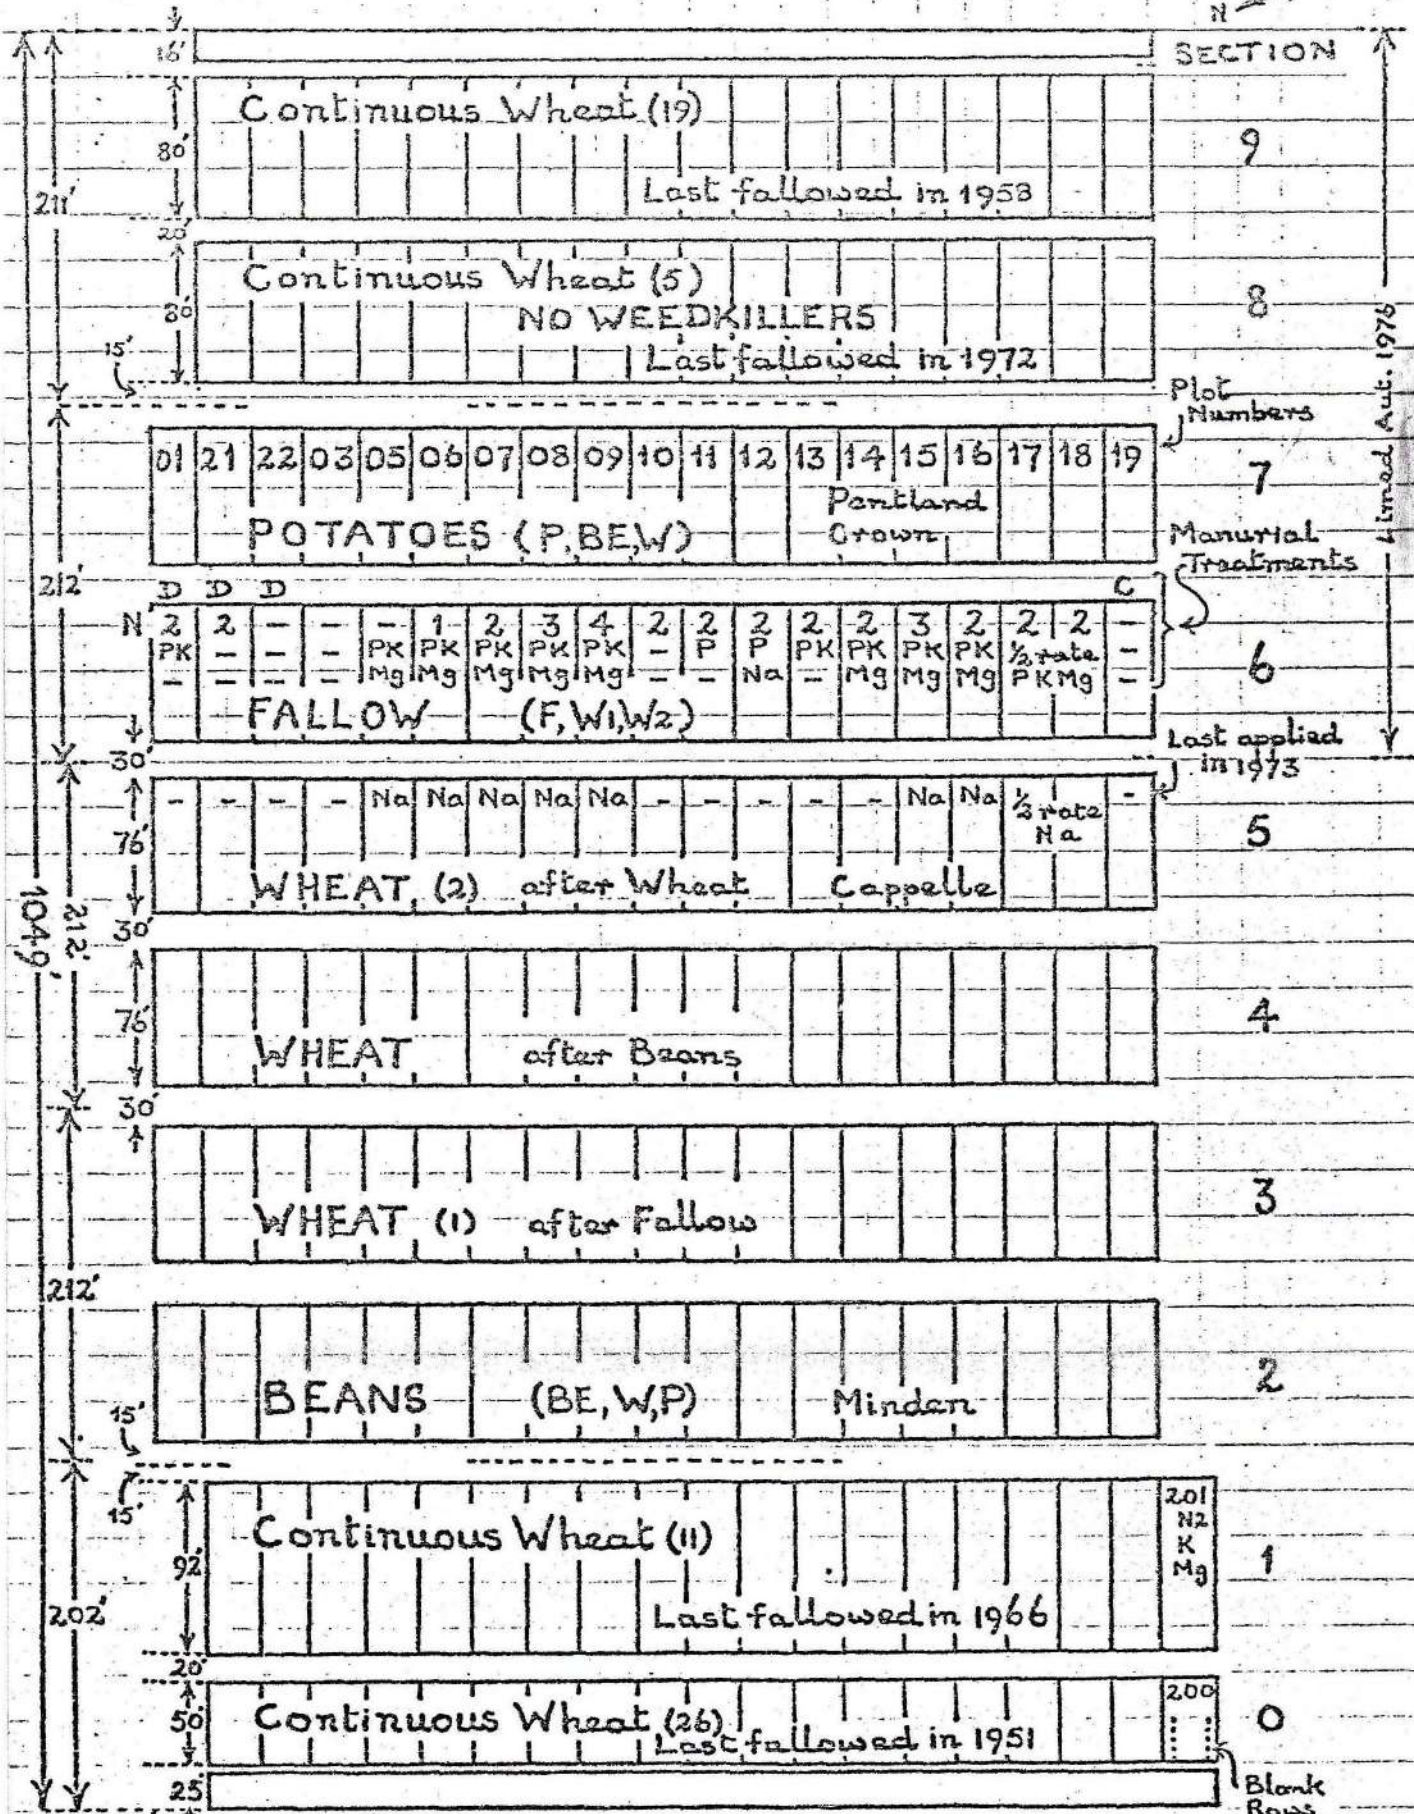 N
SECTION
16'
Continuous Wheat (19)
80'
9
Last fallowed in 1958
211'
20'
Continuous Wheat (5)
80'
NO WEEDKILLERS
8
Last fallowed in 1972
15'
Limed Aut. 1976
Plot
Numbers
01 21 22 03 05 06 07 08 09 10 11 12 13 14 15 16 17 18 19
7
Pentland
Crown
POTATOES (P,BE,W)
Manurial
Treatments
212'
D D D C
N 2 2 - - - 1 2 3 4 2 2 2 2 2 3 2 2 2 -
PK - - - PK PK PK PK PK - P P PK PK PK PK ½ rate -
- - - - Mg Mg Mg Mg Mg - - Na - Mg Mg Mg PKMg -
6
FALLOW (F,W1,W2)
30'
Last applied
in 1973
- - - - Na Na Na Na Na - - - - - Na Na ½ rate -
Na
76'
5
WHEAT (2) after Wheat Cappelle
30'
1049'
212'
76'
4
WHEAT after Beans
30'
3
WHEAT (1) after Fallow
212'
2
BEANS (BE,W,P) Minden
15'
15'
201
N2
K
Mg
Continuous Wheat (11)
92'
1
Last fallowed in 1966
202'
20'
200
Continuous Wheat (26)
50'
0
Last fallowed in 1951
25'
Blank
Rows